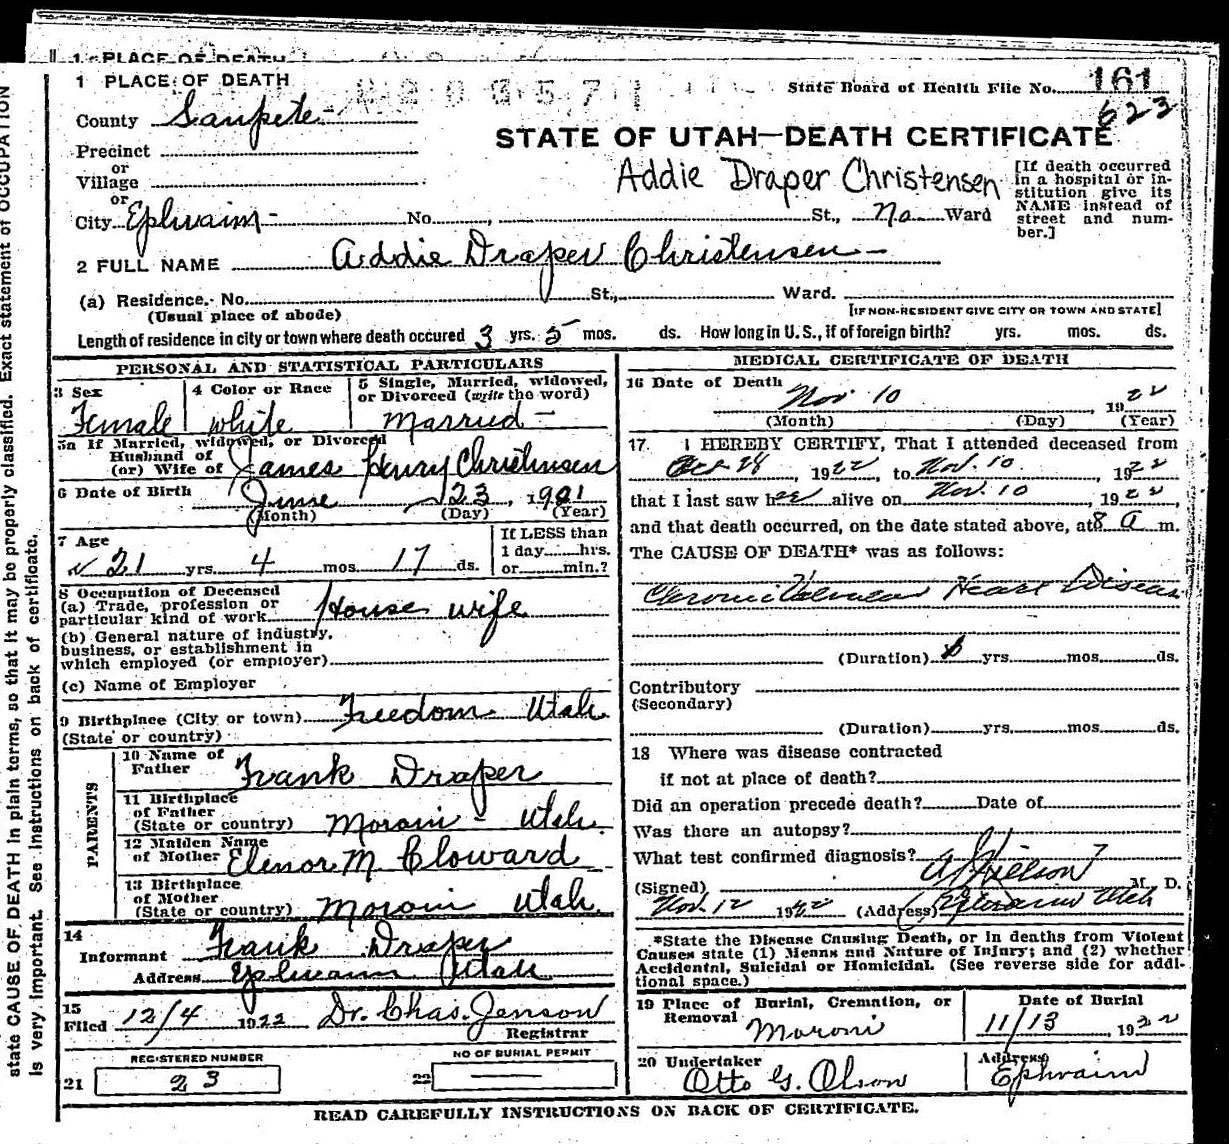 1 PLACE OF DEATH
1 PLACE OF DEATH
State Board of Health File No. 161
623
County Sanpete
STATE OF UTAH—DEATH CERTIFICATE
Precinct
or
Village
or
Addie Draper Christensen
[If death occurred in a hospital or in-stitution give its NAME instead of street and num-ber.]
City Ephraim No. , St., no Ward
2 FULL NAME Addie Draper Christensen
(a) Residence. No. St., Ward.
(Usual place of abode) [IF NON-RESIDENT GIVE CITY OR TOWN AND STATE]
Length of residence in city or town where death occured 3 yrs. 5 mos. ds. How long in U. S., if of foreign birth? yrs. mos. ds.
PERSONAL AND STATISTICAL PARTICULARS
3 Sex Female
4 Color or Race white
5 Single, Married, widowed, or Divorced (write the word) Married
5a If Married, widowed, or Divorced
Husband of
(or) Wife of James Henry Christensen
6 Date of Birth June 23, 1901
(Month) (Day) (Year)
7 Age
21 yrs. 4 mos. 17 ds.
If LESS than
1 day hrs.
or min.?
8 Occupation of Deceased
(a) Trade, profession or
particular kind of work House wife
(b) General nature of industry,
business, or establishment in
which employed (or employer)
(c) Name of Employer
9 Birthplace (City or town) Freedom Utah
(State or country)
PARENTS
10 Name of
Father Frank Draper
11 Birthplace
of Father
(State or country) Moroni - Utah.
12 Maiden Name
of Mother Elenor M. Cloward
13 Birthplace
of Mother
(State or country) Moroni Utah.
14
Informant Frank Draper
Address Ephraim Utah
15
Filed 12/4 1922 Dr. Chas. Jenson
Registrar
REGISTERED NUMBER
21 23
NO OF BURIAL PERMIT
22
MEDICAL CERTIFICATE OF DEATH
16 Date of Death
Nov 10 1922
(Month) (Day) (Year)
17. I HEREBY CERTIFY, That I attended deceased from
Oct 28, 1922, to Nov. 10, 1922
that I last saw her alive on Nov. 10, 1922,
and that death occurred, on the date stated above, at 8 a m.
The CAUSE OF DEATH* was as follows:
Chronic Valvular Heart Disease
(Duration) yrs. mos. ds.
Contributory
(Secondary)
(Duration) yrs. mos. ds.
18 Where was disease contracted
if not at place of death?
Did an operation precede death? Date of
Was there an autopsy?
What test confirmed diagnosis?
(Signed) M. D.
Nov. 12 1922 (Address) Ephraim Utah
*State the Disease Causing Death, or in deaths from Violent
Causes state (1) Means and Nature of Injury; and (2) whether
Accidental, Suicidal or Homicidal. (See reverse side for addi-
tional space.)
19 Place of Burial, Cremation, or
Removal Moroni
Date of Burial
11/13, 1922
20 Undertaker
Otto G. Olson
Address
Ephraim
READ CAREFULLY INSTRUCTIONS ON BACK OF CERTIFICATE.
state CAUSE OF DEATH in plain terms, so that it may be properly classified. Exact statement of OCCUPATION
is very important. See instructions on back of certificate.